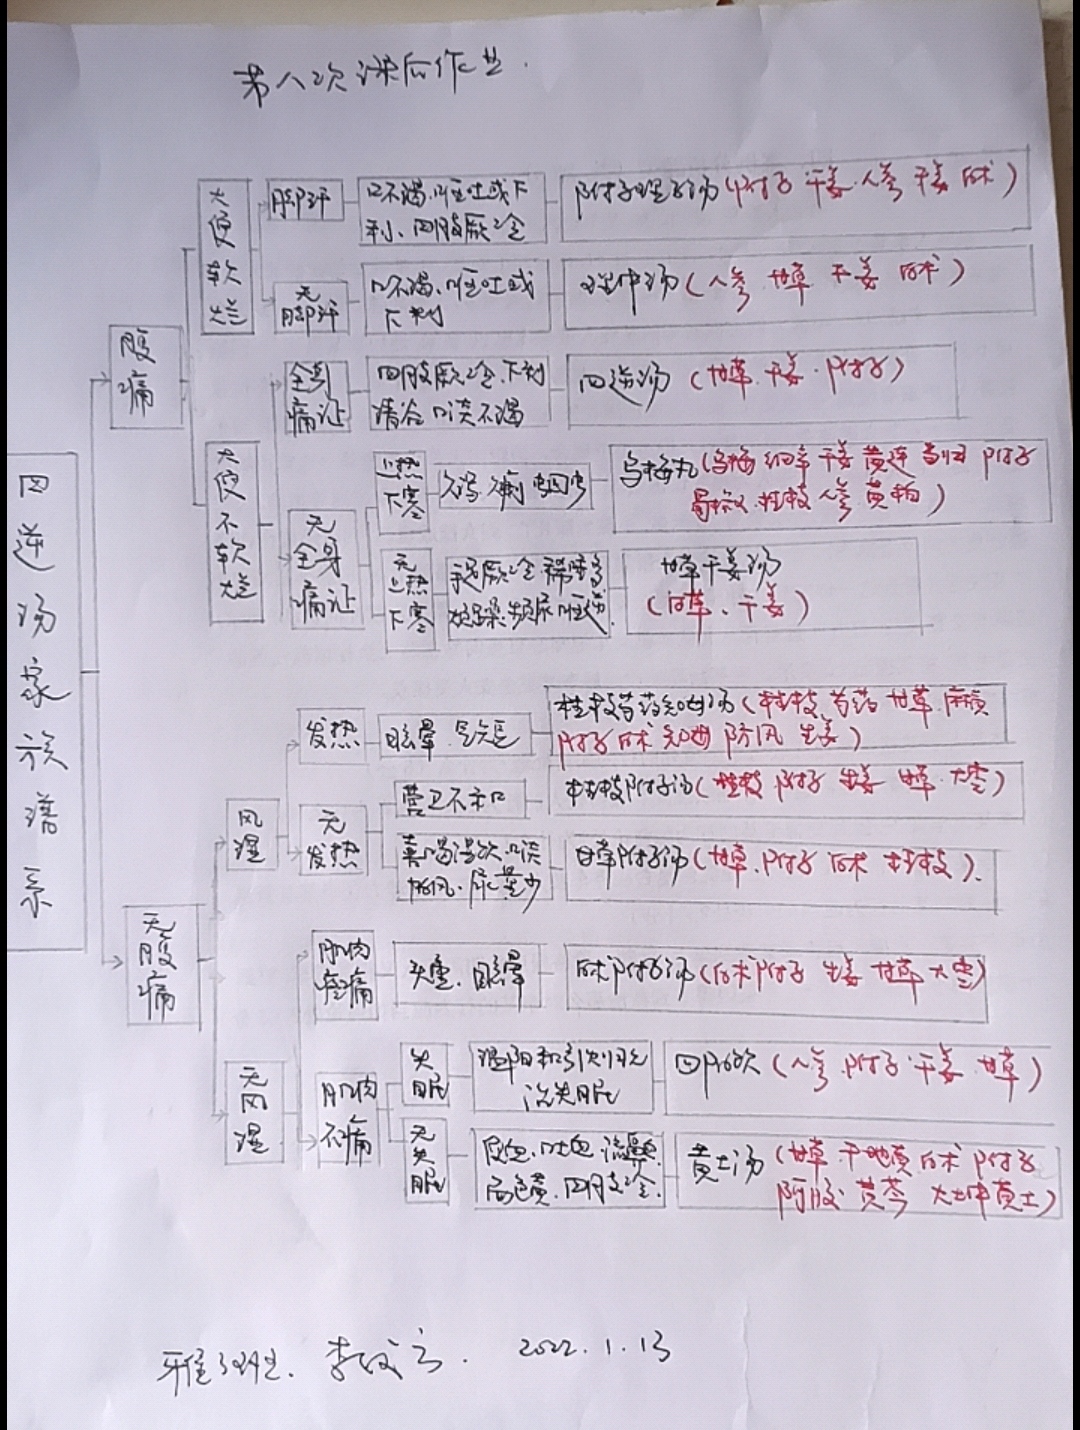 第八次课后作业.
四逆汤家族谱系
腹痛
大便软烂
脚汗
口不渴.呕吐或下
利、四肢厥冷
附子理子汤(附子 干姜.人参 干姜 白术)
无脚汗
口不渴.呕吐或
下利
理中汤(人参 甘草 干姜 白术)
大便不软烂
全身痛证
四肢厥冷.下利
清谷 口淡不渴
四逆汤(甘草.干姜.附子)
无全身痛证
上热下寒
久泻 久痢 蛔虫
乌梅丸(乌梅 细辛 干姜 黄连 当归 附子
蜀椒.桂枝 人参 黄柏)
无上热下寒
手足厥冷
烦躁.频尿.呕逆.
甘草干姜汤
(甘草、干姜)
无腹痛
风湿
发热
眩晕.气短
桂枝芍药知母汤(桂枝 芍药 甘草.麻黄
附子 白术 知母 防风 生姜)
无发热
营卫不和
桂枝附子汤(桂枝 附子 生姜 甘草.大枣)
喜喝汤饮.口淡
恶风.尿量少
甘草附子汤(甘草.附子 白术 桂枝).
无风湿
肌肉疼痛
头重.眩晕
白术附子汤(白术 附子 生姜 甘草 大枣)
肌肉不痛
失眠
温阳和引火归元
治失眠
四附饮(人参.附子.干姜.甘草)
无失眠
便血.吐血.流鼻血.
面色黄.四肢冷.
黄土汤(甘草.干地黄 白术 附子
阿胶 黄芩 灶中黄土)
2022.1.13